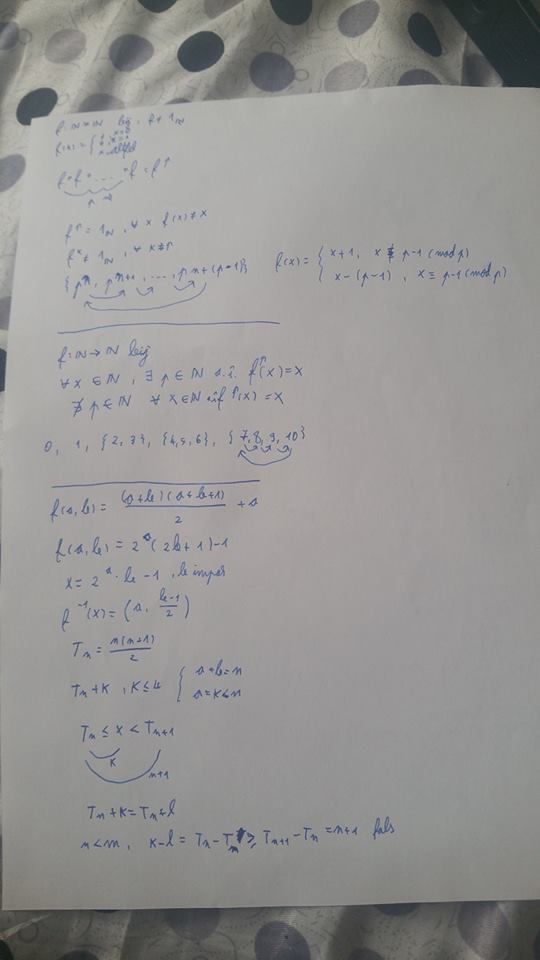 f: ℕ→ℕ bij, f≠1_ℕ
f(x) = {
f∘f∘...∘f = f^p
f^p = 1_ℕ, ∀ x f(x)≠x
f^k ≠ 1_ℕ, ∀ k≠p
{pn, pn+1, ..., pn+(p-1)}
f(x) = { x+1, x ≢ p-1 (mod p)
x-(p-1), x ≡ p-1 (mod p)
f: ℕ→ℕ bij
∀ x ∈ ℕ, ∃ p ∈ ℕ a.î. f^p(x) = x
∄ p ∈ ℕ ∀ x ∈ ℕ f^p(x) = x
0, 1, {2,3}, {4,5,6}, {7,8,9,10}
f(a,b) = (a+b)(a+b+1)/2 + a
f(a,b) = 2^a(2b+1)-1
x = 2^a · b - 1, b impar
f^-1(x) = (a, (b-1)/2)
T_n = n(n+1)/2
T_n+k, k≤n { a+b=n
a=k≤n
T_n ≤ x < T_n+1
k
n+1
T_n+k = T_m+l
n<m, k-l = T_m-T_n ≥ T_n+1 - T_n = n+1 fals